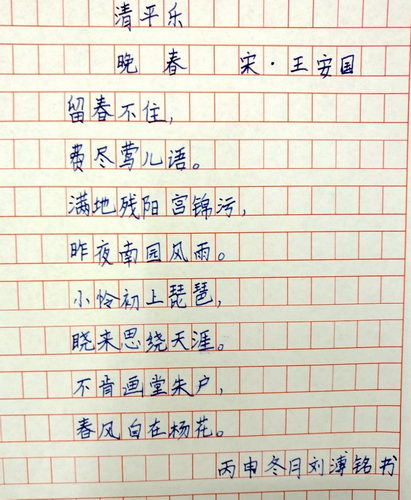 清平乐
晚春 宋·王安国
留春不住，
费尽莺儿语。
满地残阳宫锦污，
昨夜南园风雨。
小怜初上琵琶，
晓来思绕天涯。
不肯画堂朱户，
春风自在杨花。
丙申冬月刘溥铭书